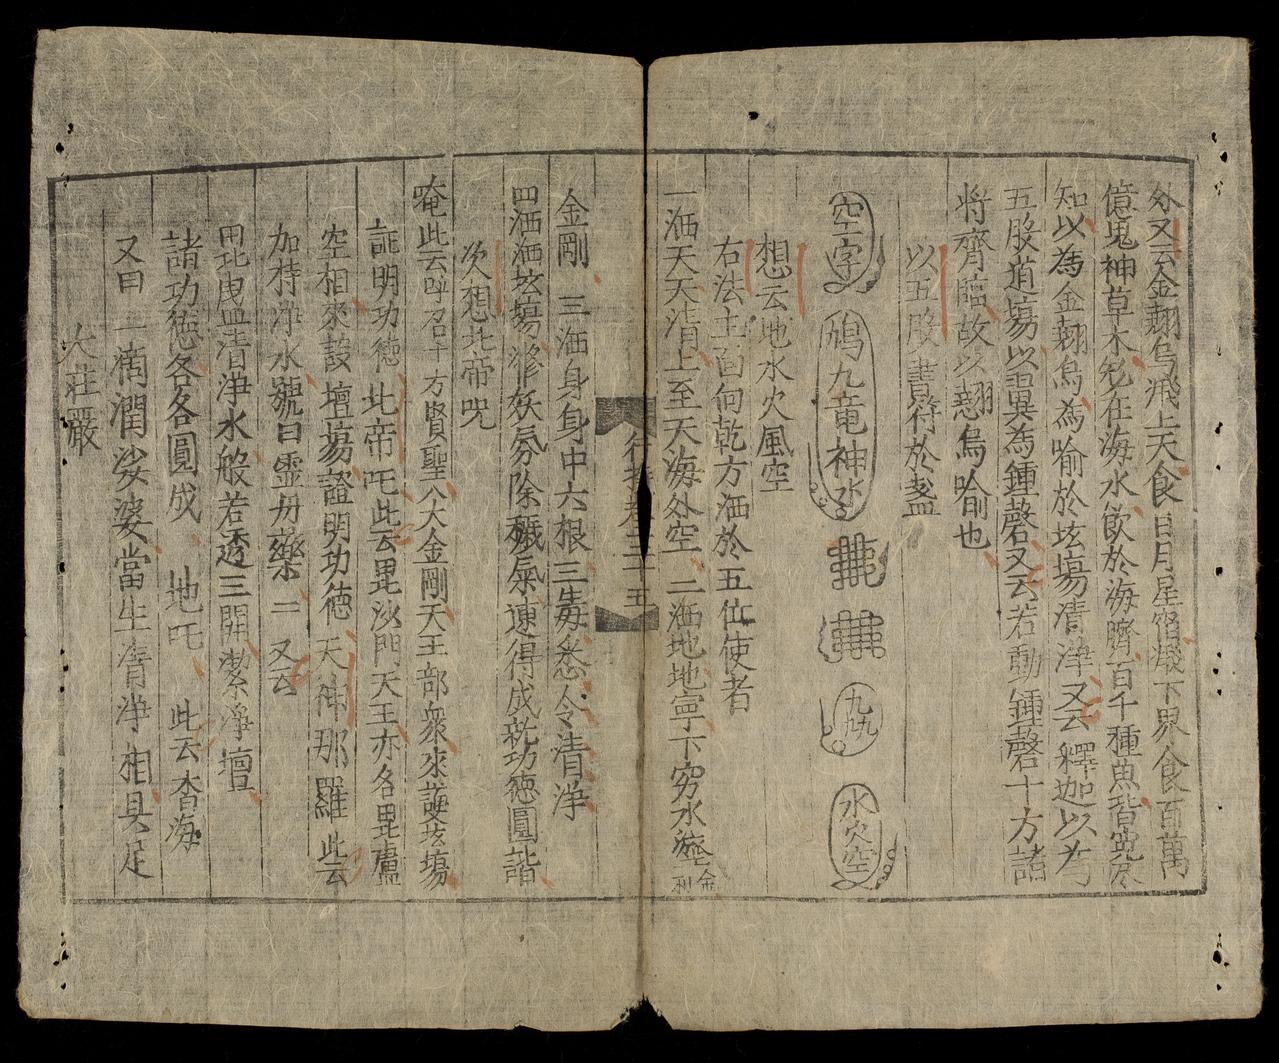 外又云金翅鳥飛上天食日月星宿凝下界食百萬
億鬼神草木欲在海水飲於海臍百千種魚皆
知以為金翅鳥為喻於玹場清津又云釋迦以為
五股道場以畢為鍾磬又云若動鍾磬十方諸
将齊臨故以翅鳥喻也
以五股書符於盞
空字 九竜神水 九九 水火空
想云地水火風空
右法主面向乾方洒於五位使者
一洒天天清上至天海外空 二洒地地寧下窮水際空金
金剛 三洒身身中六根三毒悉令清净
四洒洒玹場 妖氛除穢氣速得成就功德圓諧
次想北帝咒
唵此云呼召十方賢聖八大金剛天王部衆來護玹塲
證明功德 北帝吒此云毘沙門天王亦各毘盧
空相來設壇塲證明功德 天神那羅此云
加持净水號曰靈丹藥 一 又云
用此曳盟清净水般若透三開潔净壇
諸功德各各圓成 地吒 此云杳海
又曰 一滴潤娑婆當生清净相具足
大莊嚴